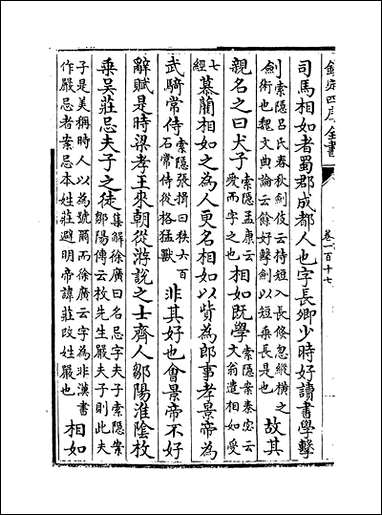 欽定四庫全書 卷一百十七
司馬相如者蜀郡成都人也字長卿少時好讀書學擊
劍索隱吕氏春秋劍伎云持短入長倏忽縱橫之
術也魏文典論云余好擊劍以短乗長是也故其
親名之曰犬子索隱孟康云
愛而字之也相如既學索隱案秦宓云
文翁遣相如受
七
經慕藺相如之為人更名相如以貲為郎事孝景帝為
武騎常侍索隱張揖曰秩六百
石常侍從格猛獸非其好也會景帝不好
辭賦是時梁孝王來朝從游説之士齊人鄒陽淮陰枚
乗吳莊忌夫子之徒集解徐廣曰名忌字夫子索隱案
鄒陽傳云枚先生嚴夫子則此夫
子是美稱時人以為號爾而徐廣云字為非漢書
作嚴忌者案忌本姓莊避明帝諱莊改姓嚴也相如